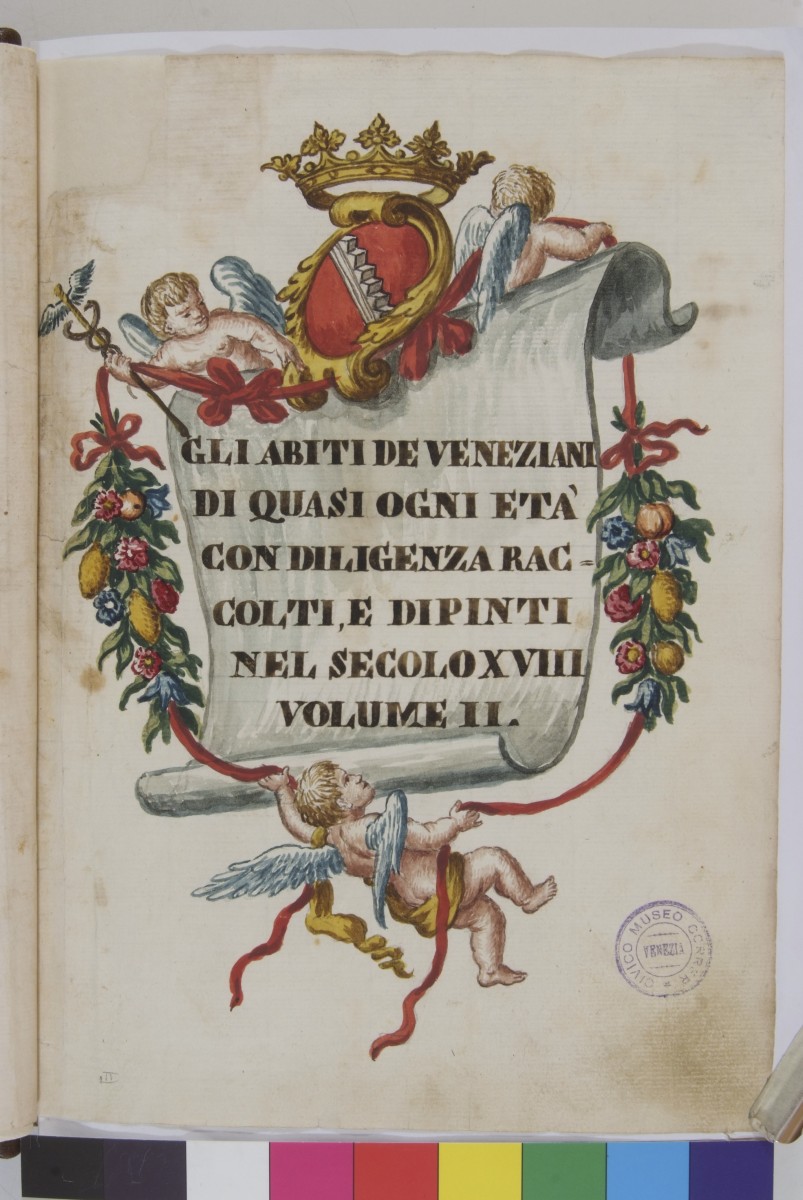 GLI ABITI DE VENEZIANI
DI QUASI OGNI ETÀ
CON DILIGENZA RAC=
COLTI, E DIPINTI
NEL SECOLO XVIII
VOLUME II.
CIVICO MUSEO CORRER
VENEZIA